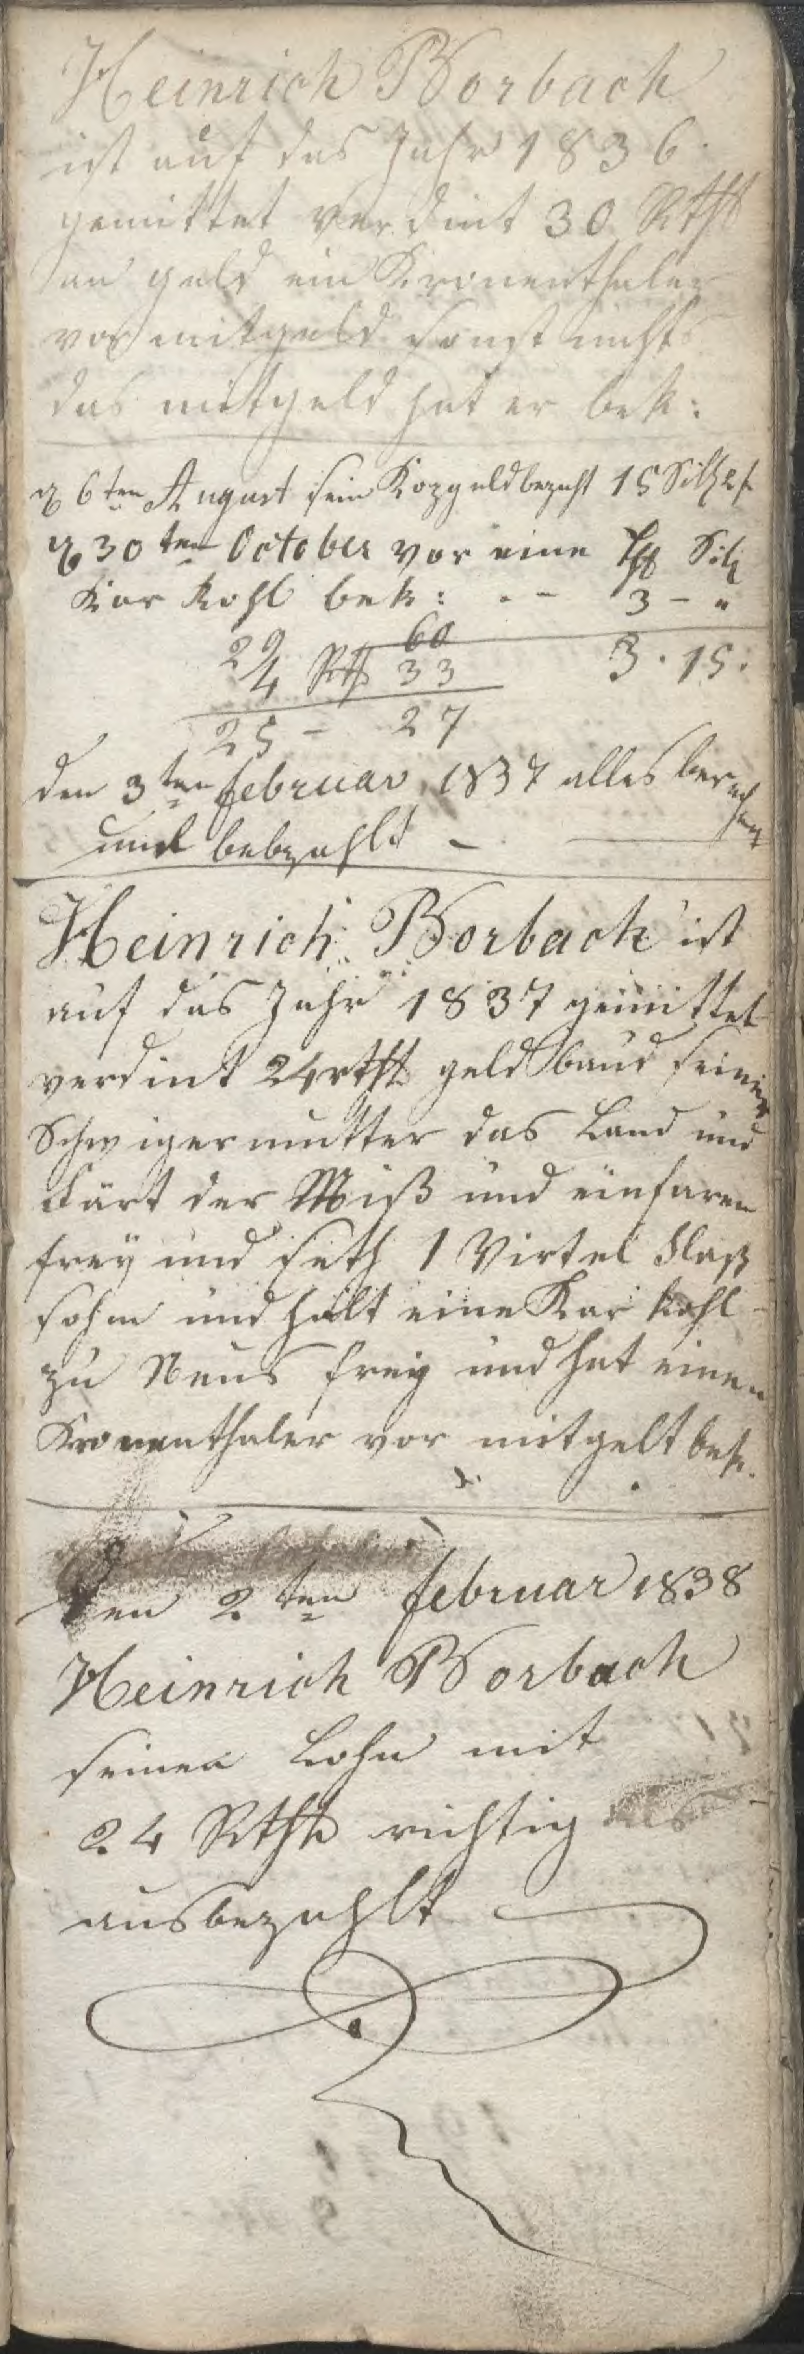 Heinrich Borbach
ist auf das Jahr 1836
gemittet verdint 30 Rthl
an geld ein Kronenthaler
vor mitgeld sonst nichts
das mitgeld hat er bek:
d 6ten August sein Kopgeld bezahlt 15 Silb
d 30ten October vor eine Rthl Silb
Kar Kohl bek: . - 3 - "
29 60 3 . 15 .
4 Rthl 33
25 - 27
den 3ten februar 1837 alles berechnet
und bebzahlt -
Heinrich Borbach ist
auf das Jahr 1837 gemittet
verdint 24 rthl geld baud seiner
Schwigermutter das Land und
färt der Miß und einfaren
frey und seth 1 Virtel Flaß
sohm und hält eine Kar Kohl
zu Neus frey und hat einen
Kronenthaler vor mitgelt bek.
den 2ten februar 1838
Heinrich Borbach
seinen Lohn mit
24 Rthl richtig
ausbezahlt